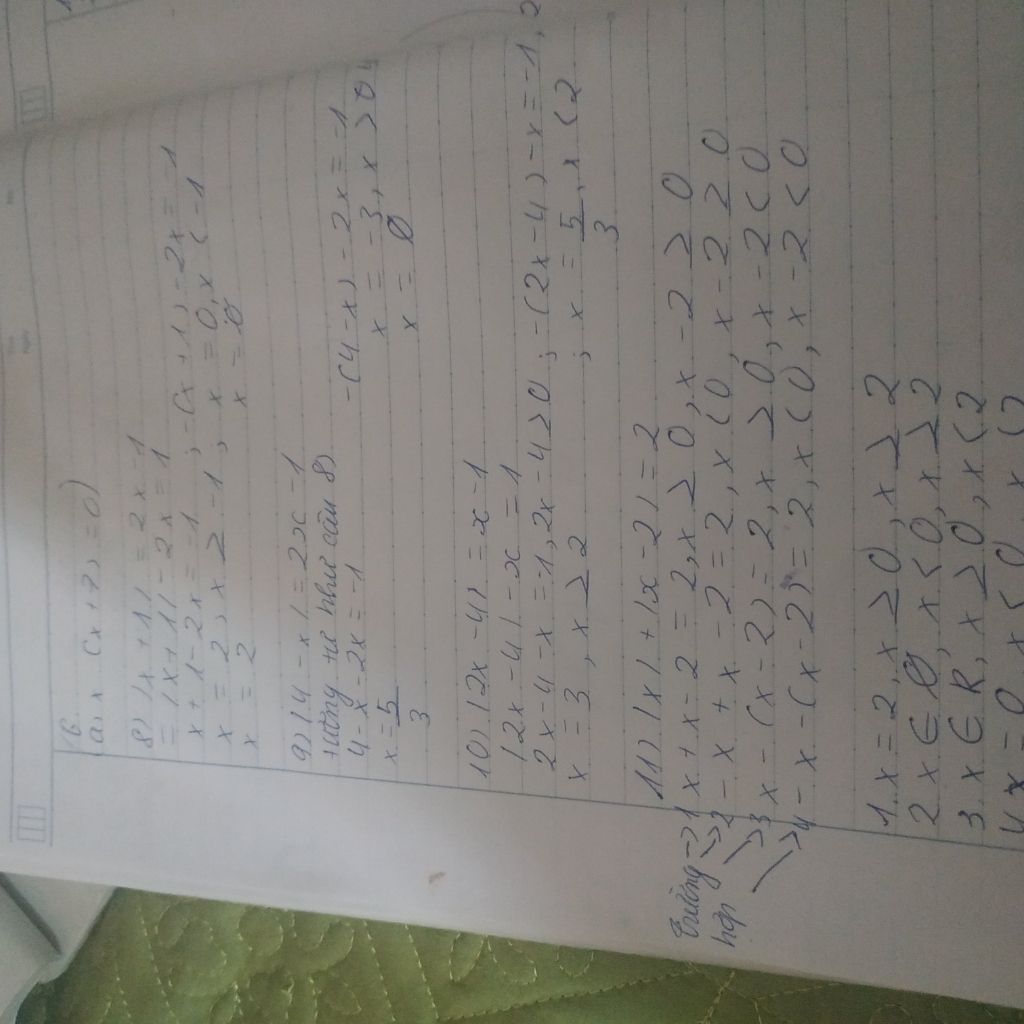 16
(a,x (x+7)=0)
8) |x+1|=2x-1
= |x+1|-2x=1
x+1-2x=-1 ; -(x+1)-2x=-1
x=2, x≥-1 ; x=0, x<-1
x=2 x=∅
9) |4-x|=2x-1
tương tự như câu 8)
4-x-2x=-1 -(4-x)-2x=-1
x=5/3 x=-3, x>4
x=∅
10) |2x-4|=x-1
|2x-4|-x=1
2x-4-x=-1, 2x-4≥0 ; -(2x-4)-x=-1, 2
x=3, x≥2 ; x=5/3, x<2
11) |x|+|x-2|=2
Trường hợp
→1 x+x-2=2, x≥0, x-2≥0
→2 -x+x-2=2, x<0, x-2≥0
→3 x-(x-2)=2, x≥0, x-2<0
→4 -x-(x-2)=2, x<0, x-2<0
1. x=2, x≥0, x≥2
2 x∈∅, x<0, x≥2
3. x∈R, x≥0, x<2
4 x=0, x<0, x<2